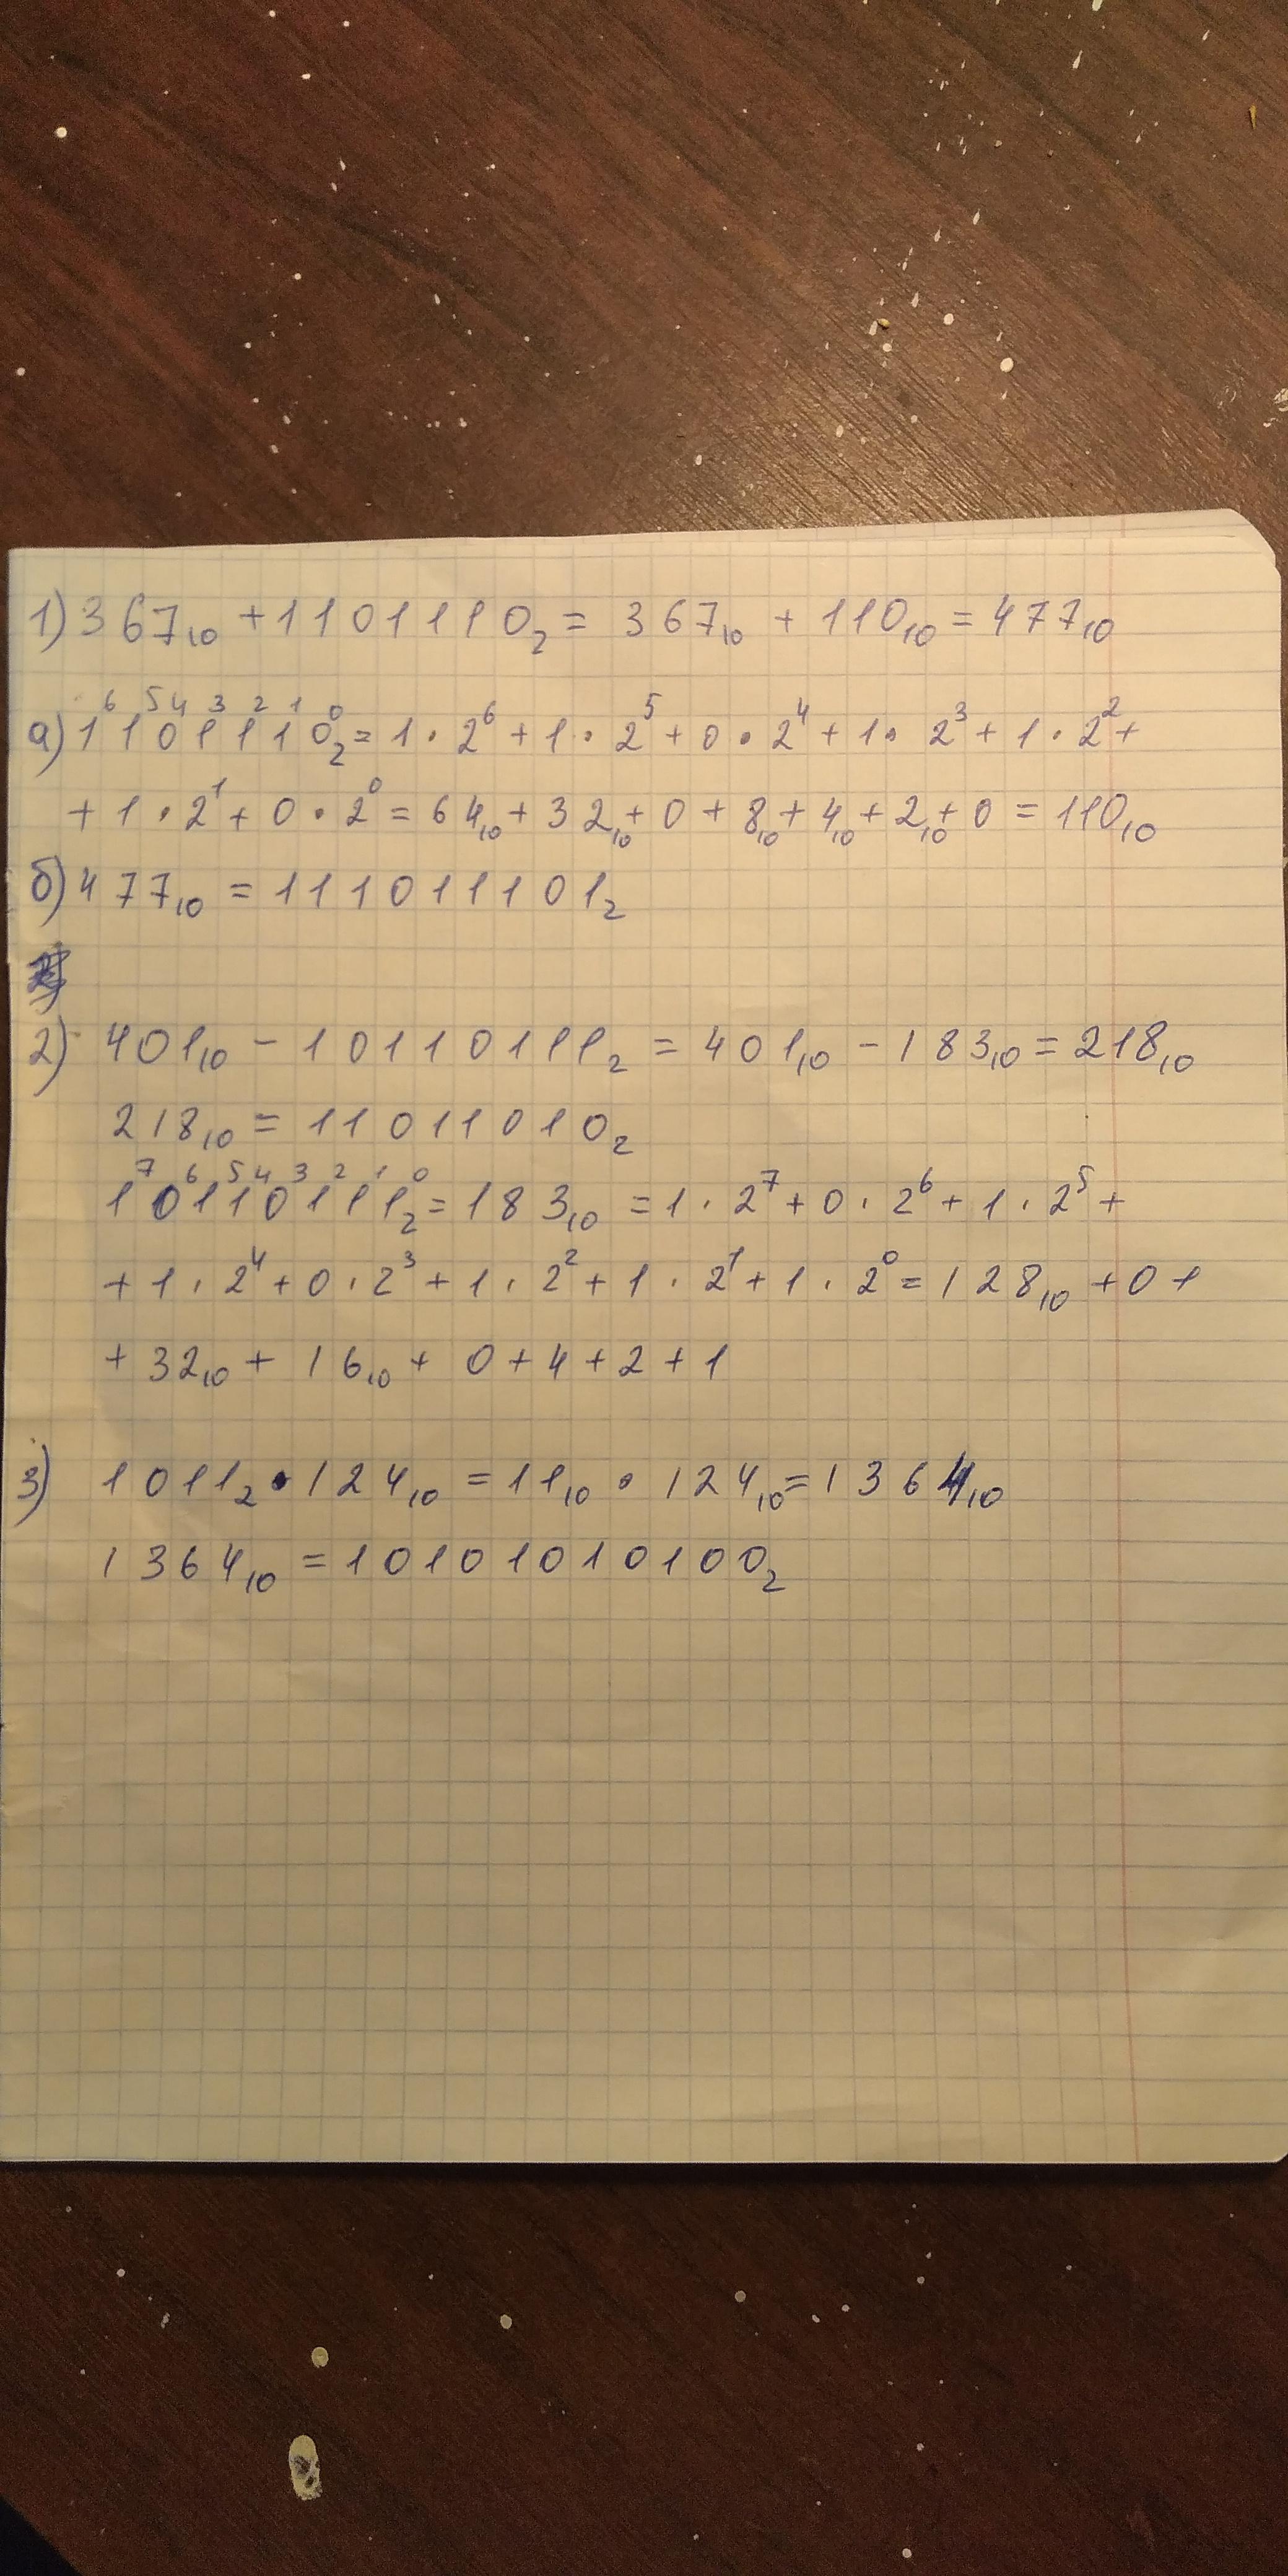 1) 367₁₀ + 1101110₂ = 367₁₀ + 110₁₀ = 477₁₀
6 5 4 3 2 1 0
а) 1101110₂ = 1 · 2⁶ + 1 · 2⁵ + 0 · 2⁴ + 1 · 2³ + 1 · 2² +
+ 1 · 2¹ + 0 · 2⁰ = 64₁₀ + 32₁₀ + 0 + 8₁₀ + 4₁₀ + 2₁₀ + 0 = 110₁₀
б) 477₁₀ = 111011101₂
2) 401₁₀ - 10110111₂ = 401₁₀ - 183₁₀ = 218₁₀
218₁₀ = 11011010₂
7 6 5 4 3 2 1 0
10110111₂ = 183₁₀ = 1 · 2⁷ + 0 · 2⁶ + 1 · 2⁵ +
+ 1 · 2⁴ + 0 · 2³ + 1 · 2² + 1 · 2¹ + 1 · 2⁰ = 128₁₀ + 0 +
+ 32₁₀ + 16₁₀ + 0 + 4 + 2 + 1
3) 1011₂ · 124₁₀ = 11₁₀ · 124₁₀ = 1364₁₀
1364₁₀ = 10101010100₂